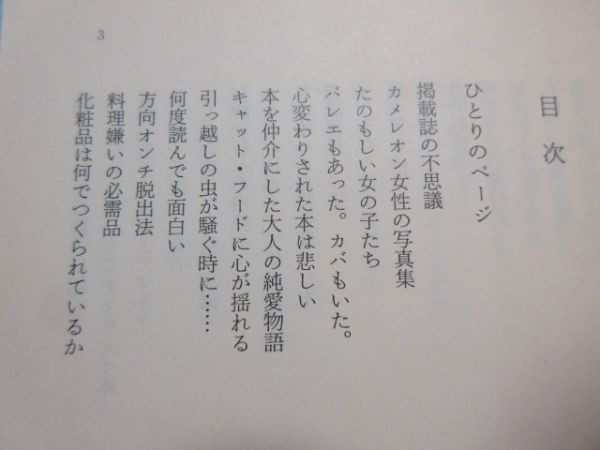 目次
ひとりのページ
掲載誌の不思議
カメレオン女性の写真集
たのもしい女の子たち
バレエもあった。カバもいた。
心変わりされた本は悲しい
本を仲介にした大人の純愛物語
キャット・フードに心が揺れる
引っ越しの虫が騒ぐ時に……
何度読んでも面白い
方向オンチ脱出法
料理嫌いの必需品
化粧品は何でつくられているか
3